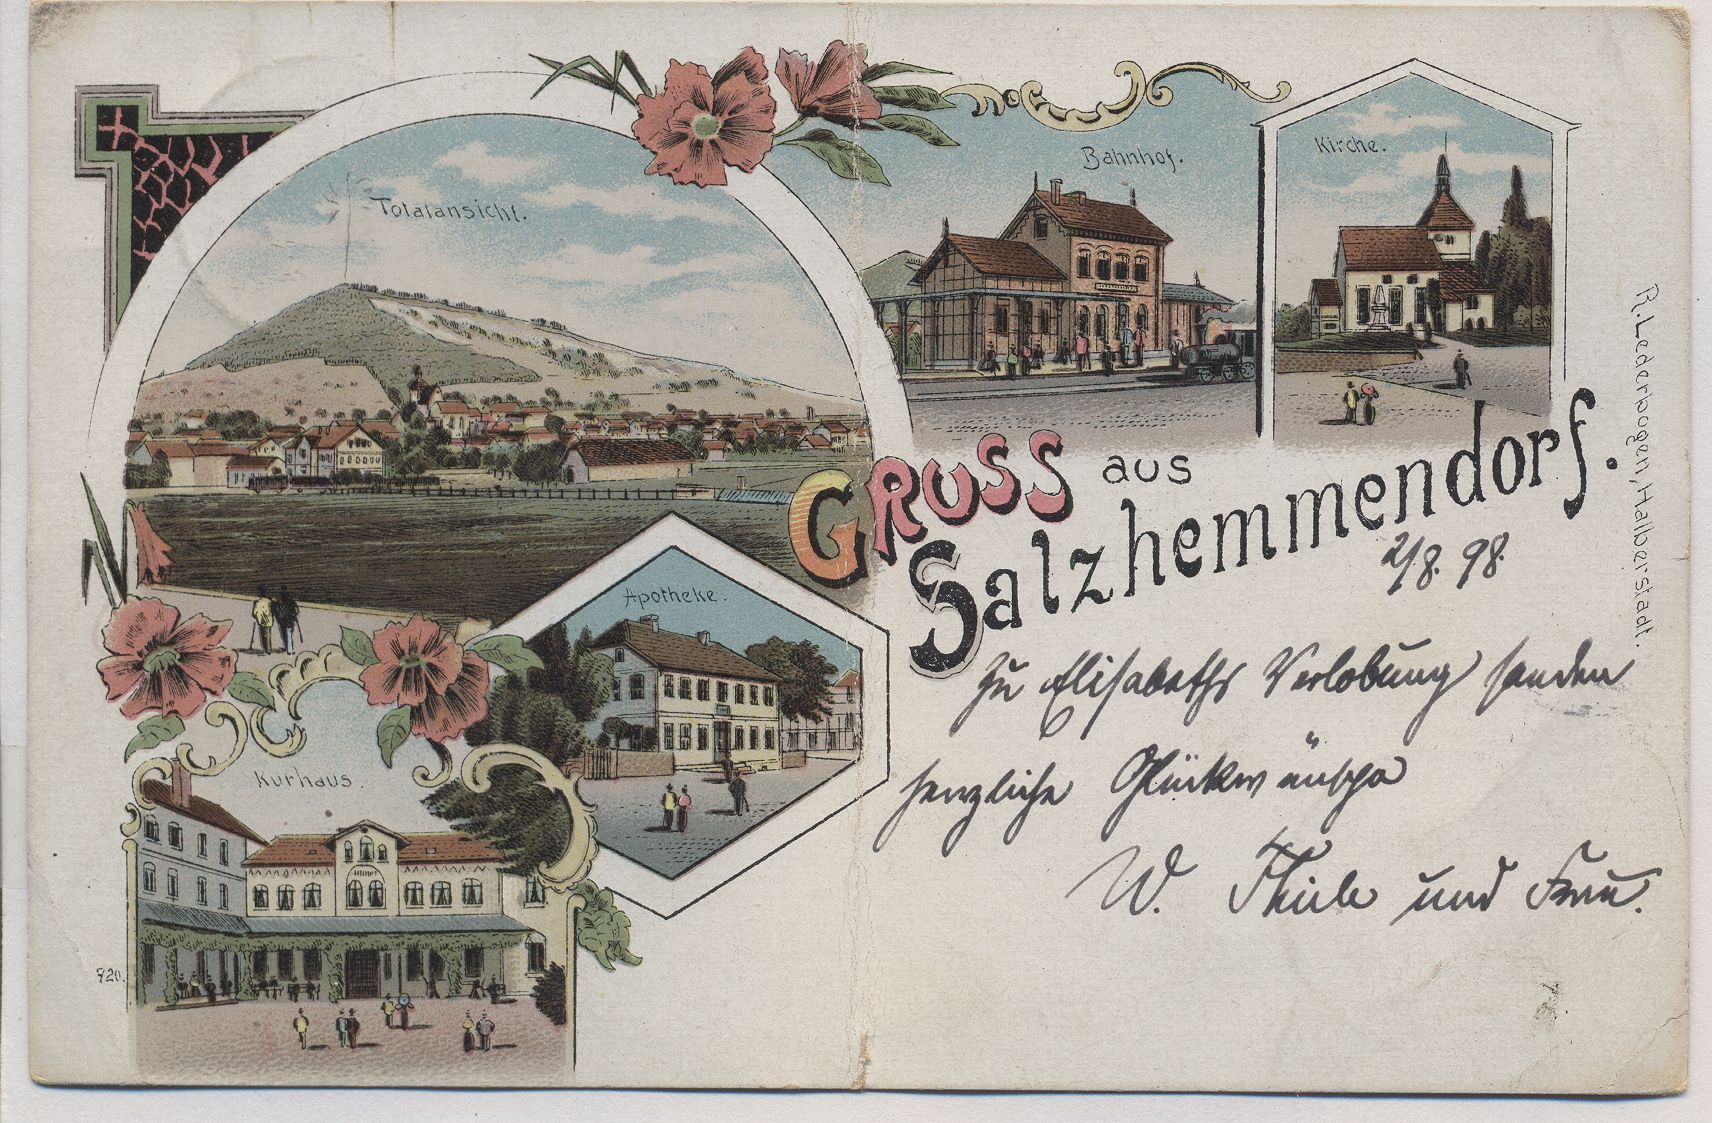 Totalansicht.
Bahnhof.
Kirche.
GRUSS aus
Salzhemmendorf.
R. Lederbogen, Halberstadt.
2/8. 98.
Apotheke.
Zu Elisabeths Verlobung senden
herzliche Glückwünsche
W. Thiele und Frau.
Kurhaus.
920.